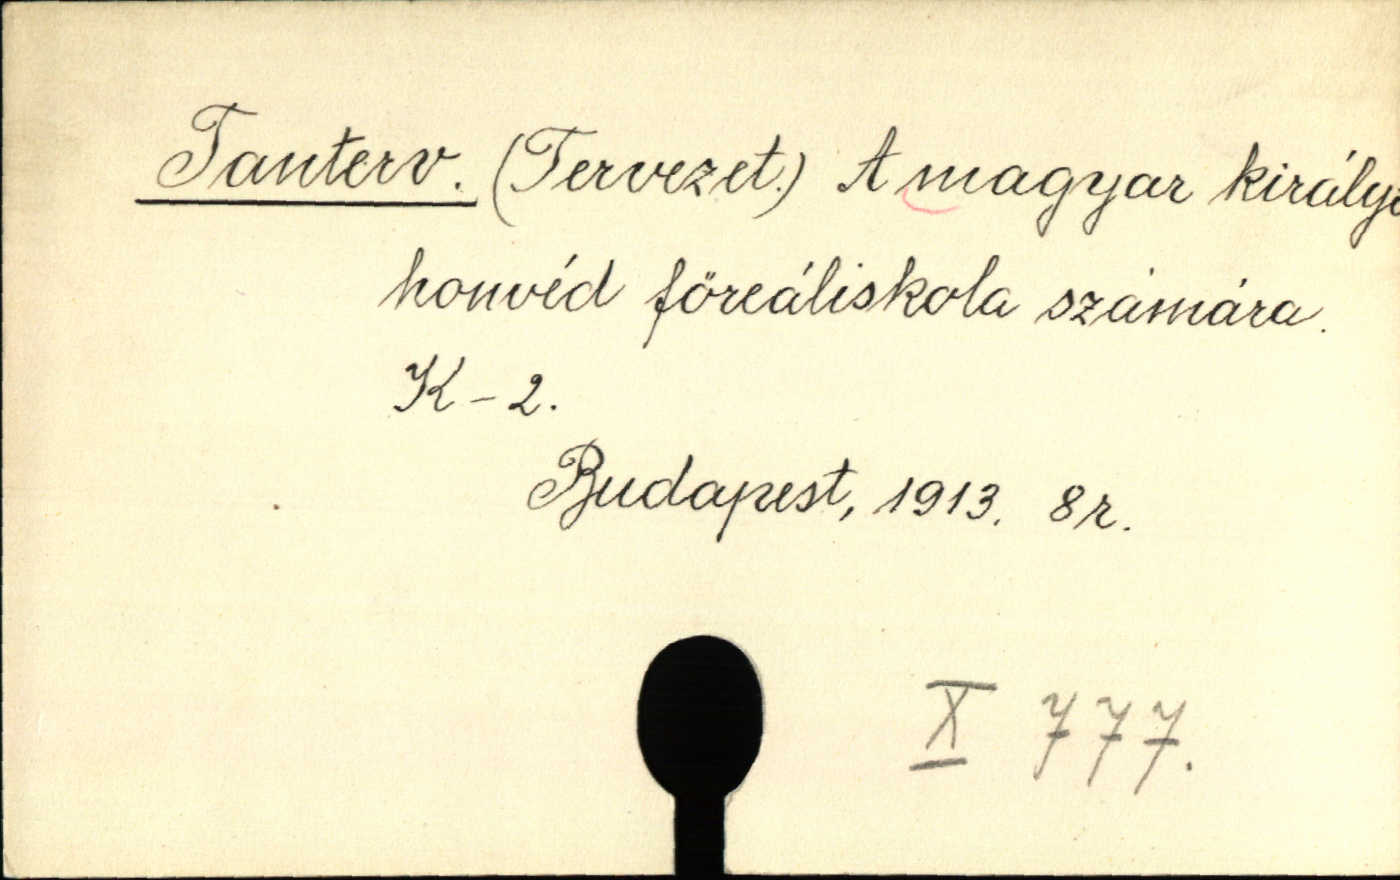 Tanterv. (Tervezet.) A magyar királyi
honvéd főreáliskola számára.
K - 2.
Budapest, 1913. 8r.
X 777.